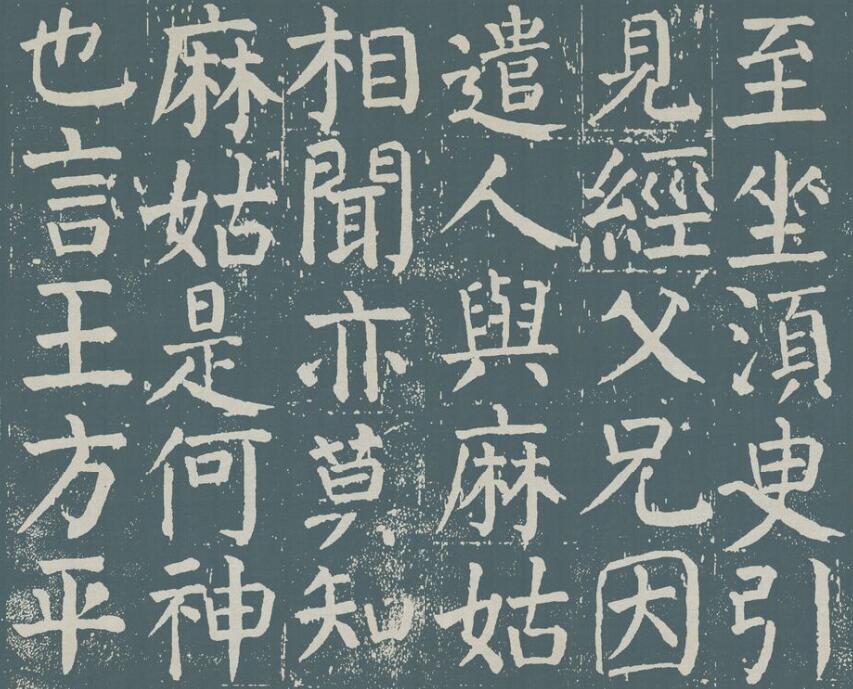 至坐須臾引
見經父兄因
遣人與麻姑
相聞亦莫知
麻姑是何神
也言王方平